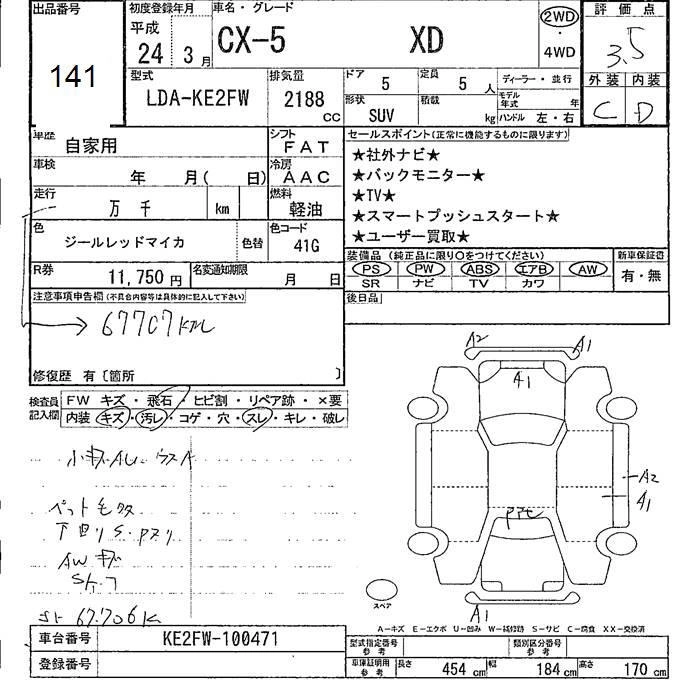 出品番号
141
初度登録年月
平成
24 3月
車名・グレード
CX-5 XD
2WD
・
4WD
評価点
3.5
外装 内装
C D
型式
LDA-KE2FW
排気量
2188 CC
ドア
5
定員
5 人
ディーラー・並行
形状
SUV
積載
kg
モデル年式 年
ハンドル 左・右
車歴
自家用
シフト
FAT
車検
年 月( 日)
冷房
AAC
走行
万 千 km
燃料
軽油
色
ジールレッドマイカ
色替
色コード
41G
R券
11,750円
名変通知期限
月 日
注意事項申告欄(不具合内容等は具体的に記入して下さい)
67707km
修復歴 有〔箇所 〕
セールスポイント(正常に機能するものに限ります)
★社外ナビ★
★バックモニター★
★TV★
★スマートプッシュスタート★
★ユーザー買取★
装備品(純正品に限り○をつけてください)
PS PW ABS エアB AW
SR ナビ TV カワ
新車保証書
有・無
後日品
検査員記入欄
FW キズ・飛石・ヒビ割・リペア跡・×要
内装 キズ・汚レ・コゲ・穴・スレ・キレ・破レ
小キズAU
AWキズ
67.706K
A2
A1
A1
A2
A1
A1
スペア
A-キズ E-エクボ U-凹み W-補修跡 S-サビ C-腐食 XX-交換済
車台番号
KE2FW-100471
登録番号
型式指定番号
参考
類別区分番号
参考
車庫証明用
参考
長さ 454 cm
幅 184 cm
高さ 170 cm